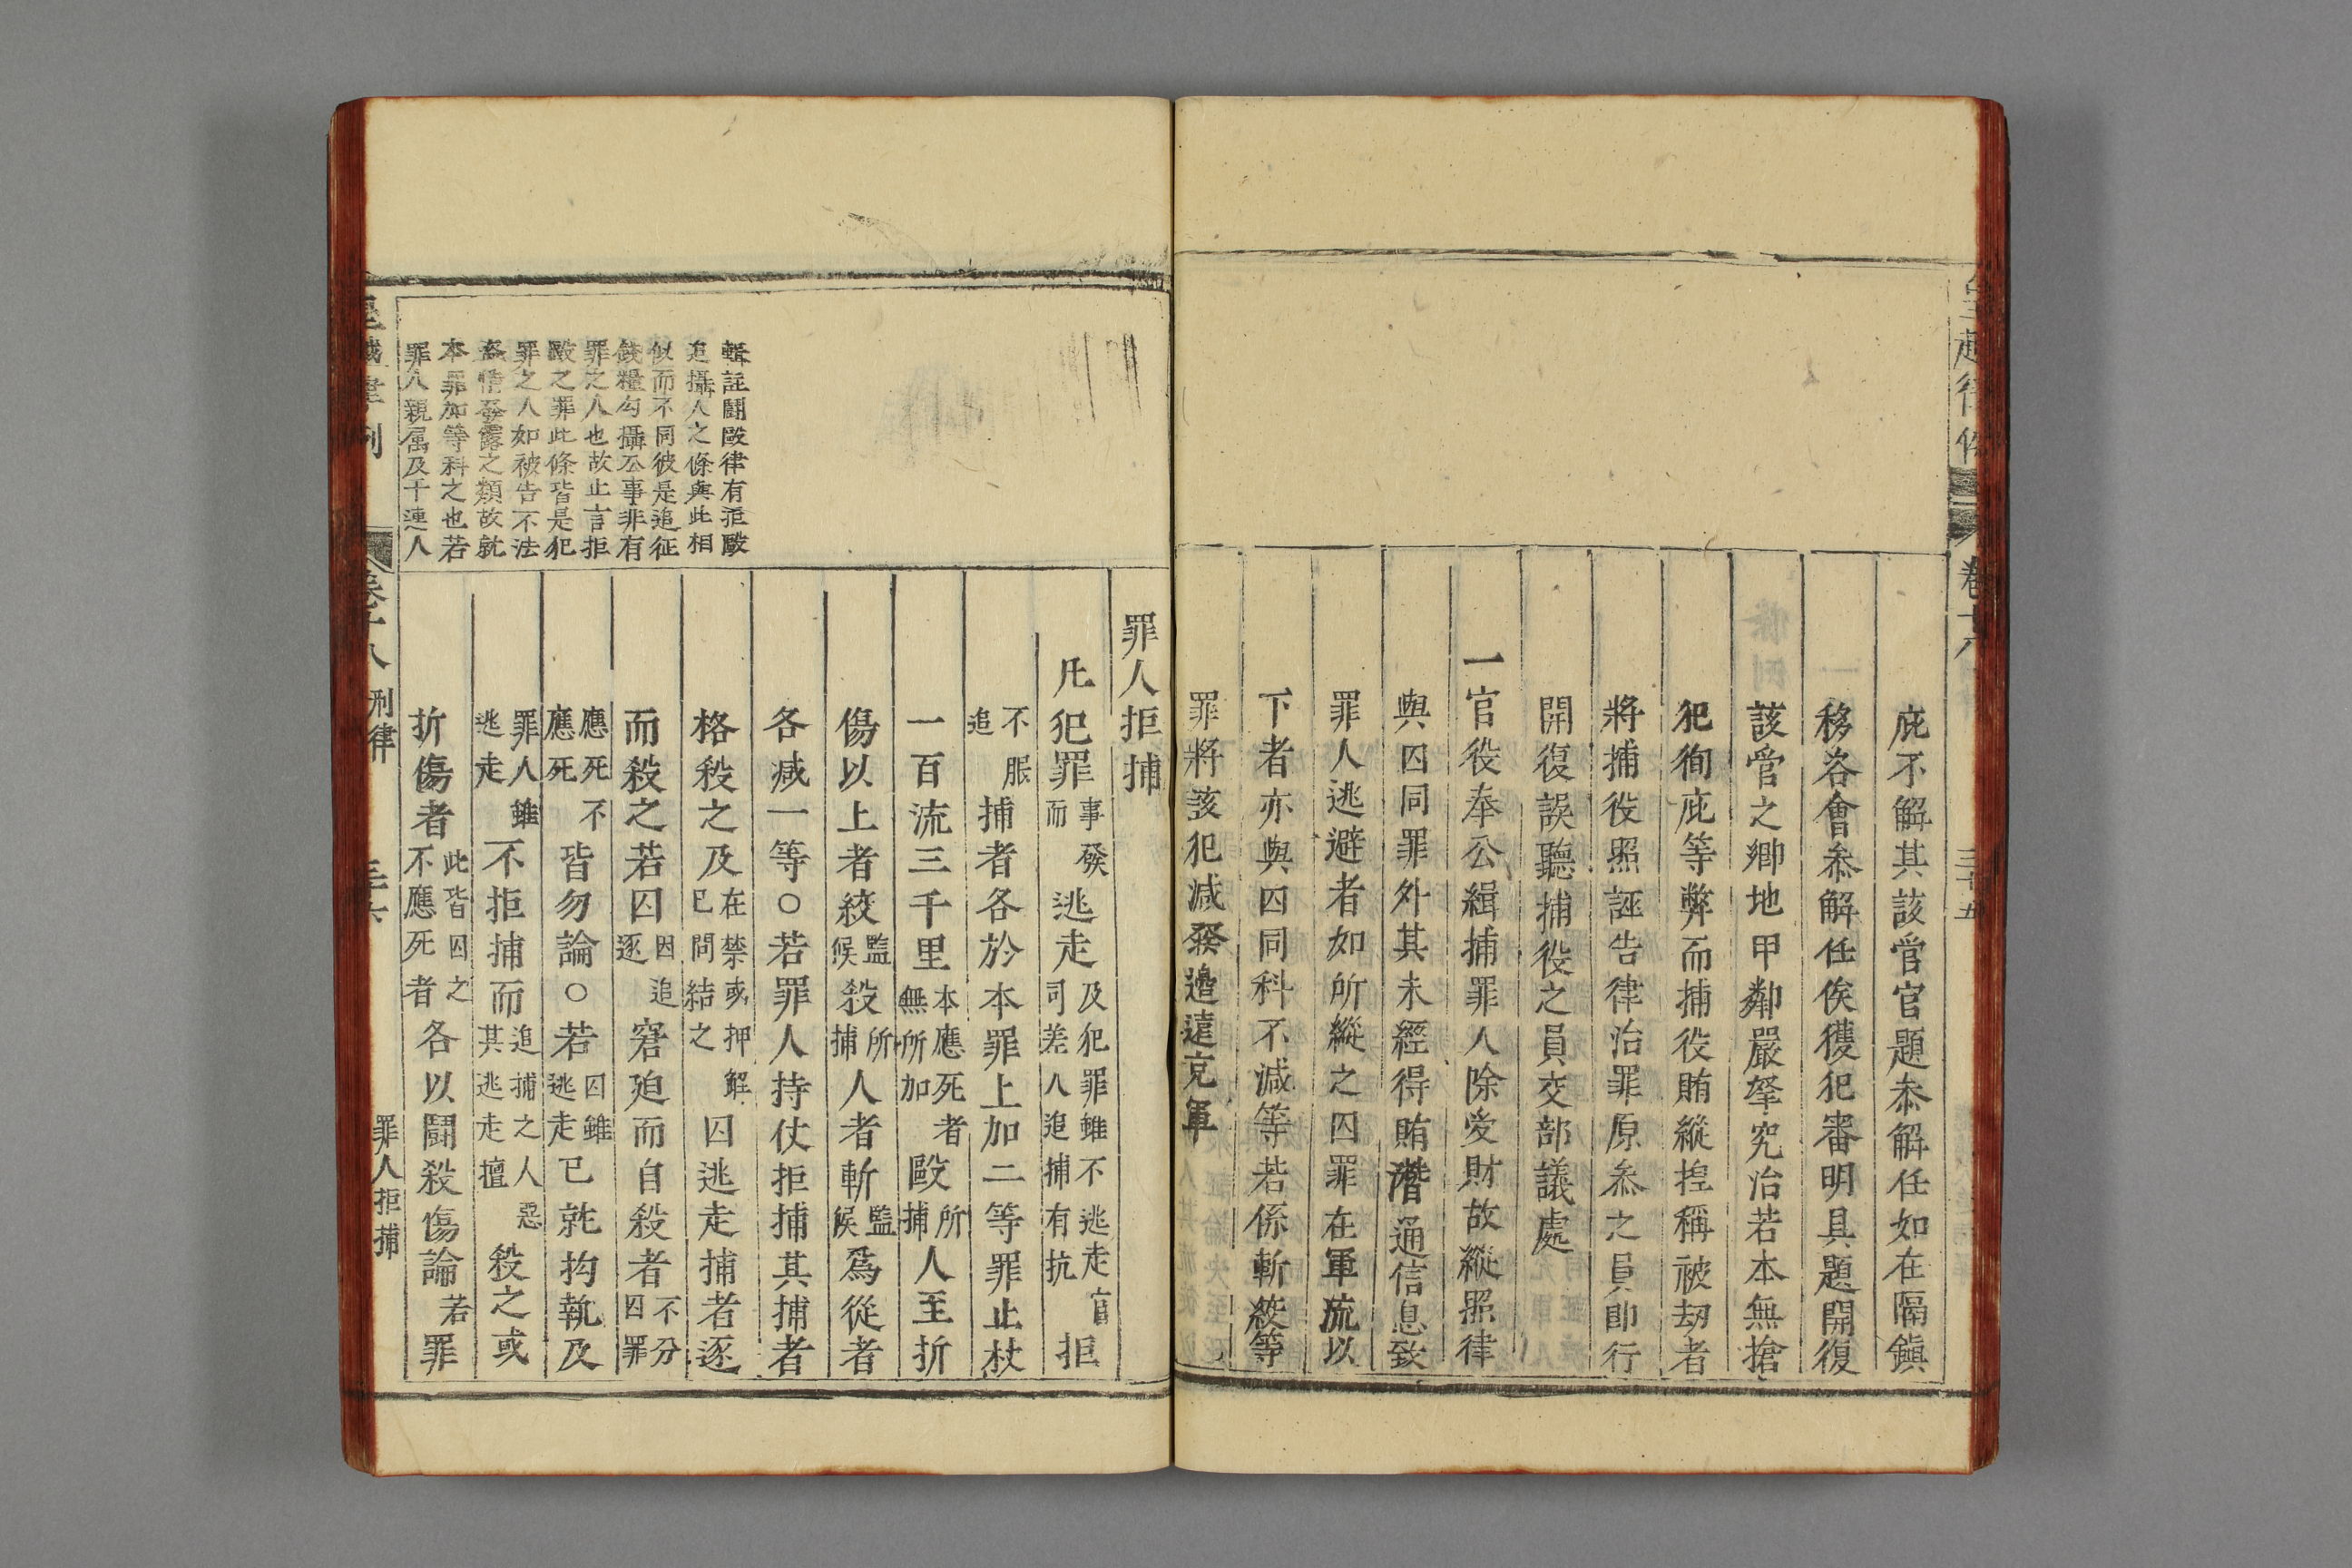 卷十八
三十五
庇不解其該管官題叅解任如在隔鎮
移咨會叅解任俟獲犯審明具題開復
該管之鄉地甲鄰嚴拏究治若本無搶
犯徇庇等弊而捕役賄縱揑稱被刼者
將捕役照誣告律治罪原叅之員卽行
開復誤聽捕役之員交部議處
一官役奉公緝捕罪人除受財故縱照律
與囚同罪外其未經得賄潛通信息致
罪人逃避者如所縱之囚罪在軍流以
下者亦與囚同科不減等若係斬絞等
罪將該犯減發邊遠充軍
輯註鬪毆律有拒毆
追攝人之條與此相
似而不同彼是追征
錢糧勾攝公事非有
罪之人也故止言拒
毆之罪此條皆是犯
罪之人如被告不法
姦情發露之類故就
本罪加等科之也若
罪人親属及干連人
罪人拒捕
凡犯罪事發而逃走及犯罪雖不逃走官司差人追捕有抗拒
不服追捕者各於本罪上加二等罪止杖
一百流三千里本應死者無所加毆所捕人至折
傷以上者絞監候殺所捕人者斬監候爲從者
各减一等○若罪人持仗拒捕其捕者
格殺之及在禁或押解已問結之囚逃走捕者逐
而殺之若囚因追逐窘廹而自殺者不分囚罪
應死不應死皆勿論○若囚雖逃走已就拘執及
罪人雖逃走不拒捕而追捕之人惡其逃走擅殺之或
折傷者此皆囚之不應死者各以鬪殺傷論若罪
卷十八
刑律
罪人拒捕